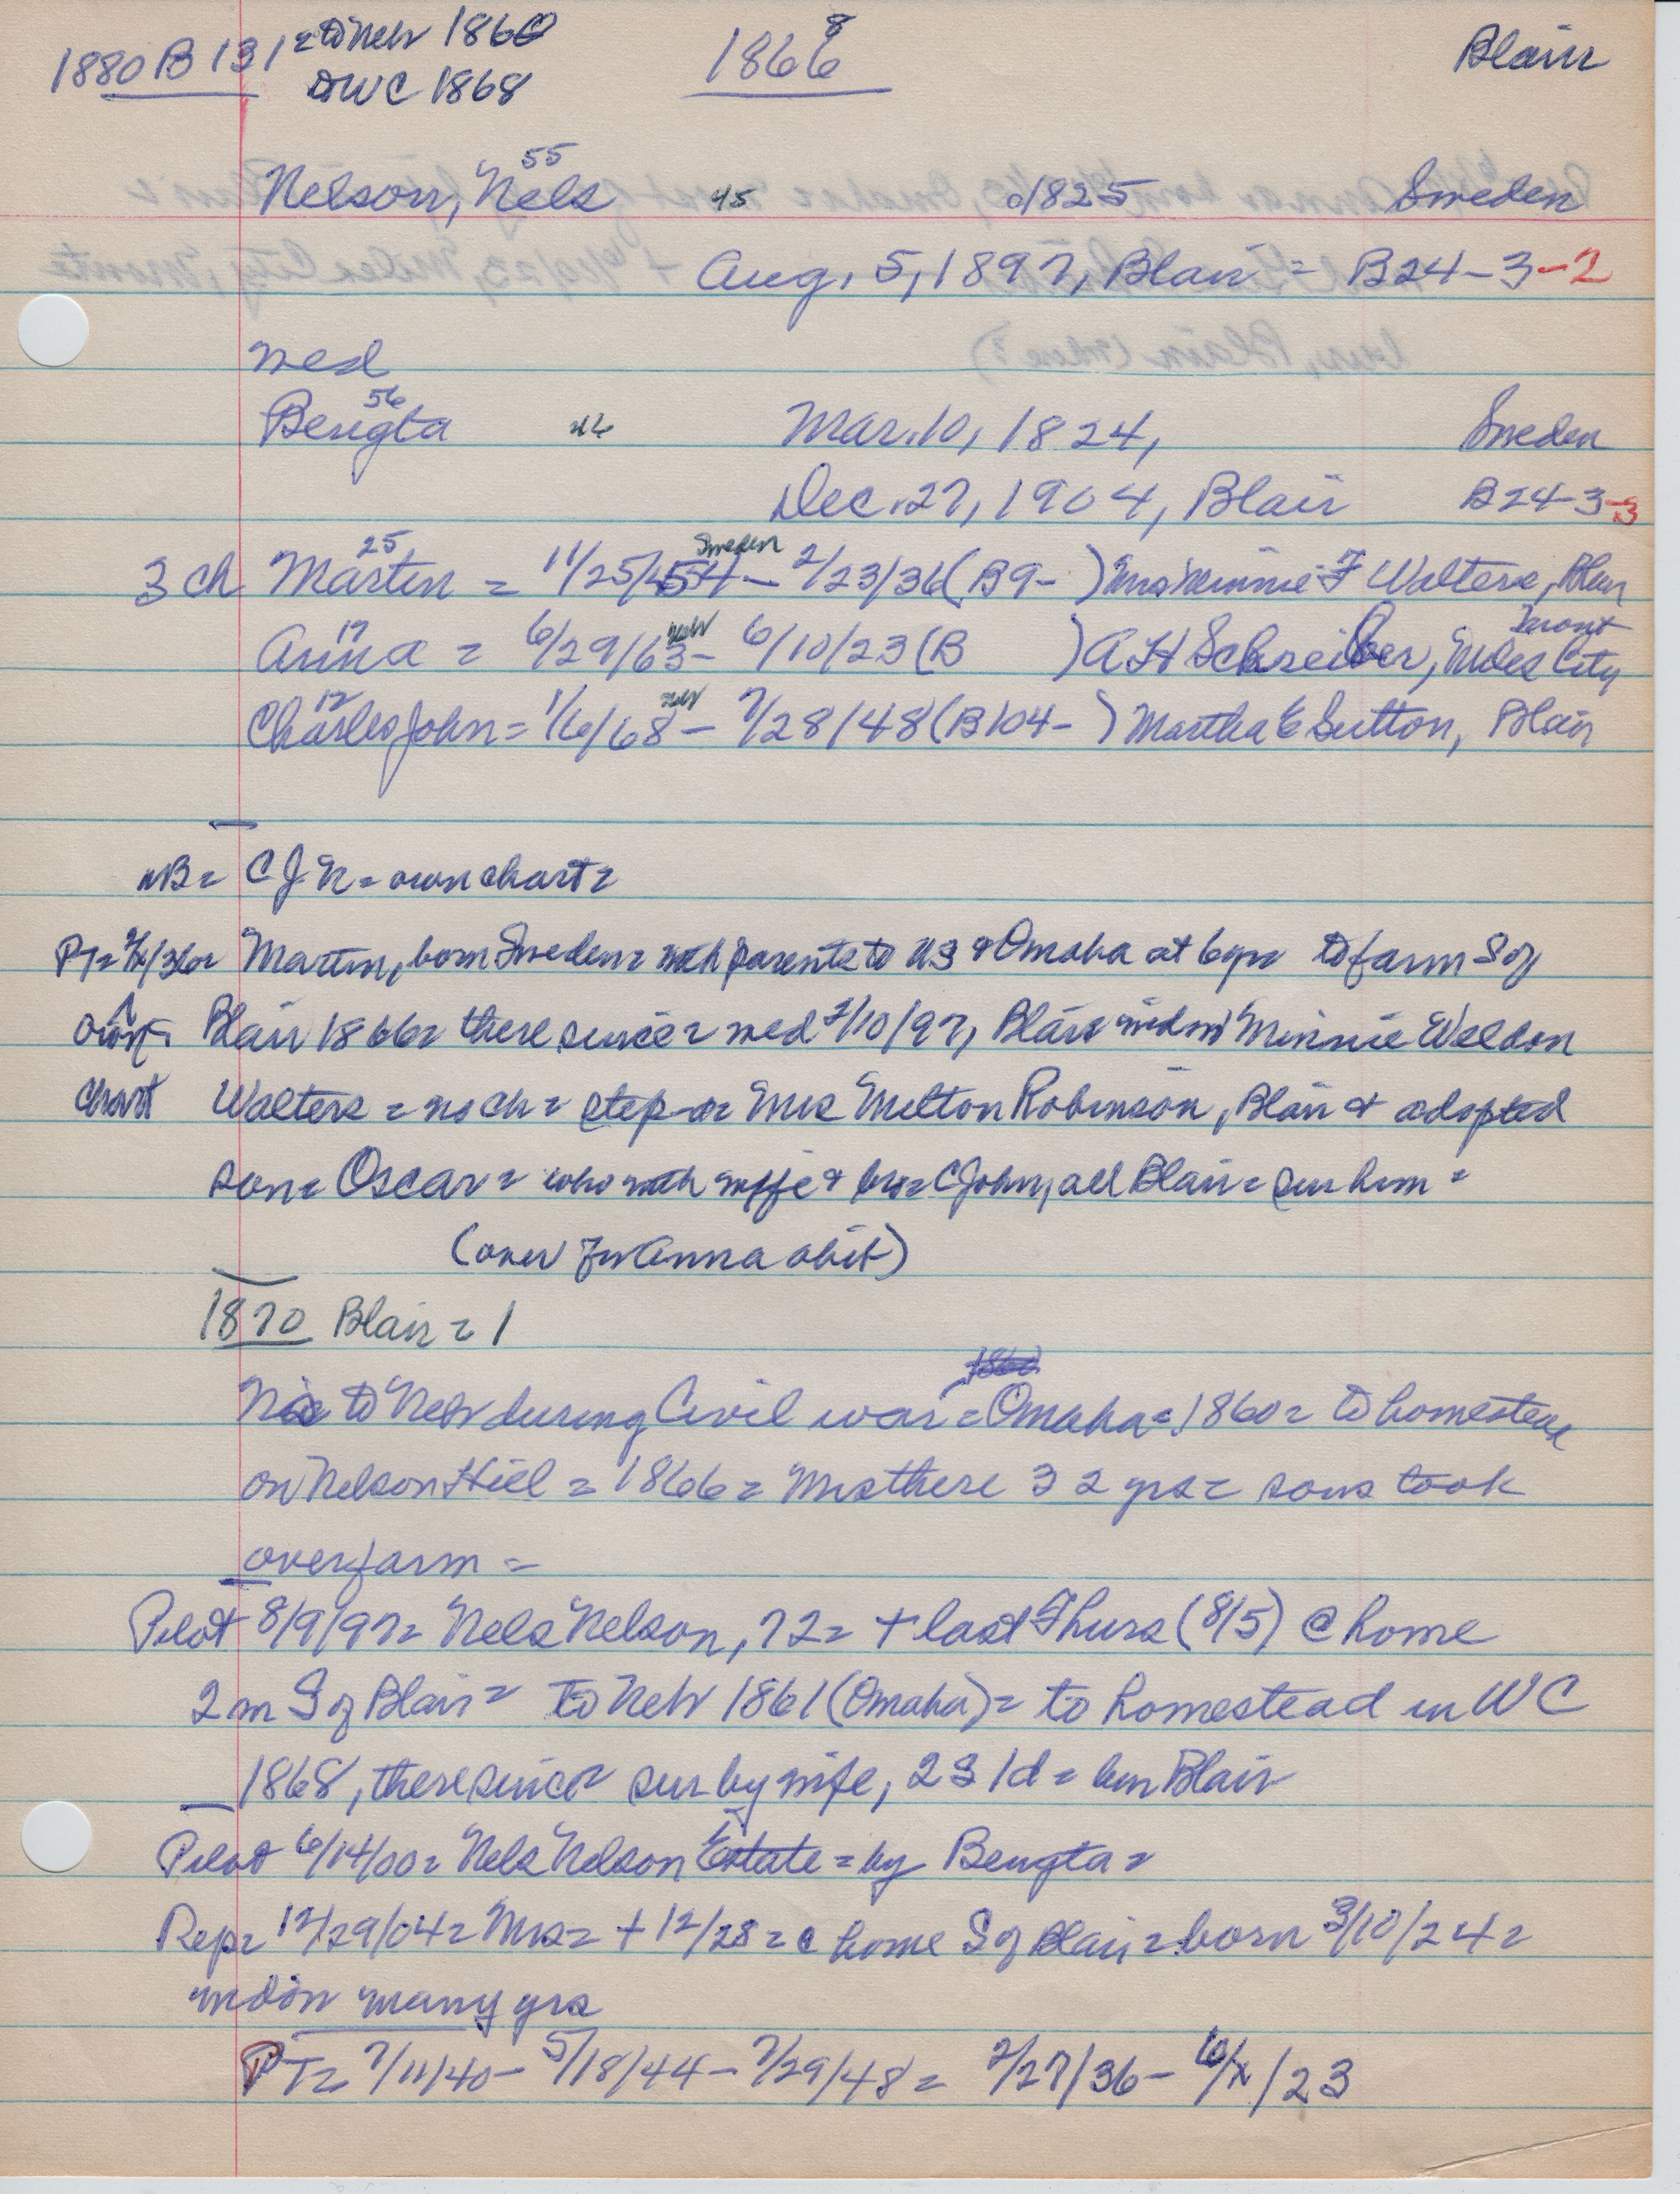 1880 B 131 = to Neb 1860 1868 Blair
DWC 1868
55
Nelson, Nels 45 c1825 Sweden
Aug. 5, 1897, Blair = B24-3-2
med
56
Bengta 46 Mar. 10, 1824, Sweden
Dec. 27, 1904, Blair B24-3-3
25 Sweden
3 ch Martin = 11/25/54 - 2/23/36 (B9- ) Mrs Minnie F Walters, Blair
17 Neb Mont
Anna = 6/29/63 - 6/10/23 (B ) A H Schreiber, Miles City
12 Neb
Charles John = 1/6/68 - 7/28/48 (B104- ) Martha E Sutton, Blair
NB = C J N = own chart =
PT = 2/ /36 = Martin, born Sweden = with parents to US & Omaha at 6 yrs = to farm S of
own Blair 1866 = there since = med 2/10/97, Blair Minnie Weldon
chart Walters = no ch = step-d = Mrs Milton Robinson, Blair & adopted
son = Oscar = who with wife & bro = C John, all Blair = sur him =
(over for Anna obit)
1870 Blair = 1
to Neb during Civil war = Omaha = 1860 = to homestead
on Nelson Hill = 1866 = Mrs there 32 yrs = sons took
over farm =
Pilot 8/9/97 = Nels Nelson, 72 = + last Thurs (8/5) @ home
2 m S of Blair = to Neb 1861 (Omaha) = to homestead in WC
1868, there since = sur by wife, 2 S 1 d = bur Blair
Pilot 6/14/00 = Nels Nelson Estate = by Bengta =
Rep = 12/29/04 = Mrs = + 12/28 = @ home S of Blair = born 3/10/24 =
widow many yrs
PT = 7/11/40 - 5/18/44 - 7/29/48 = 2/27/36 - 6/x/23